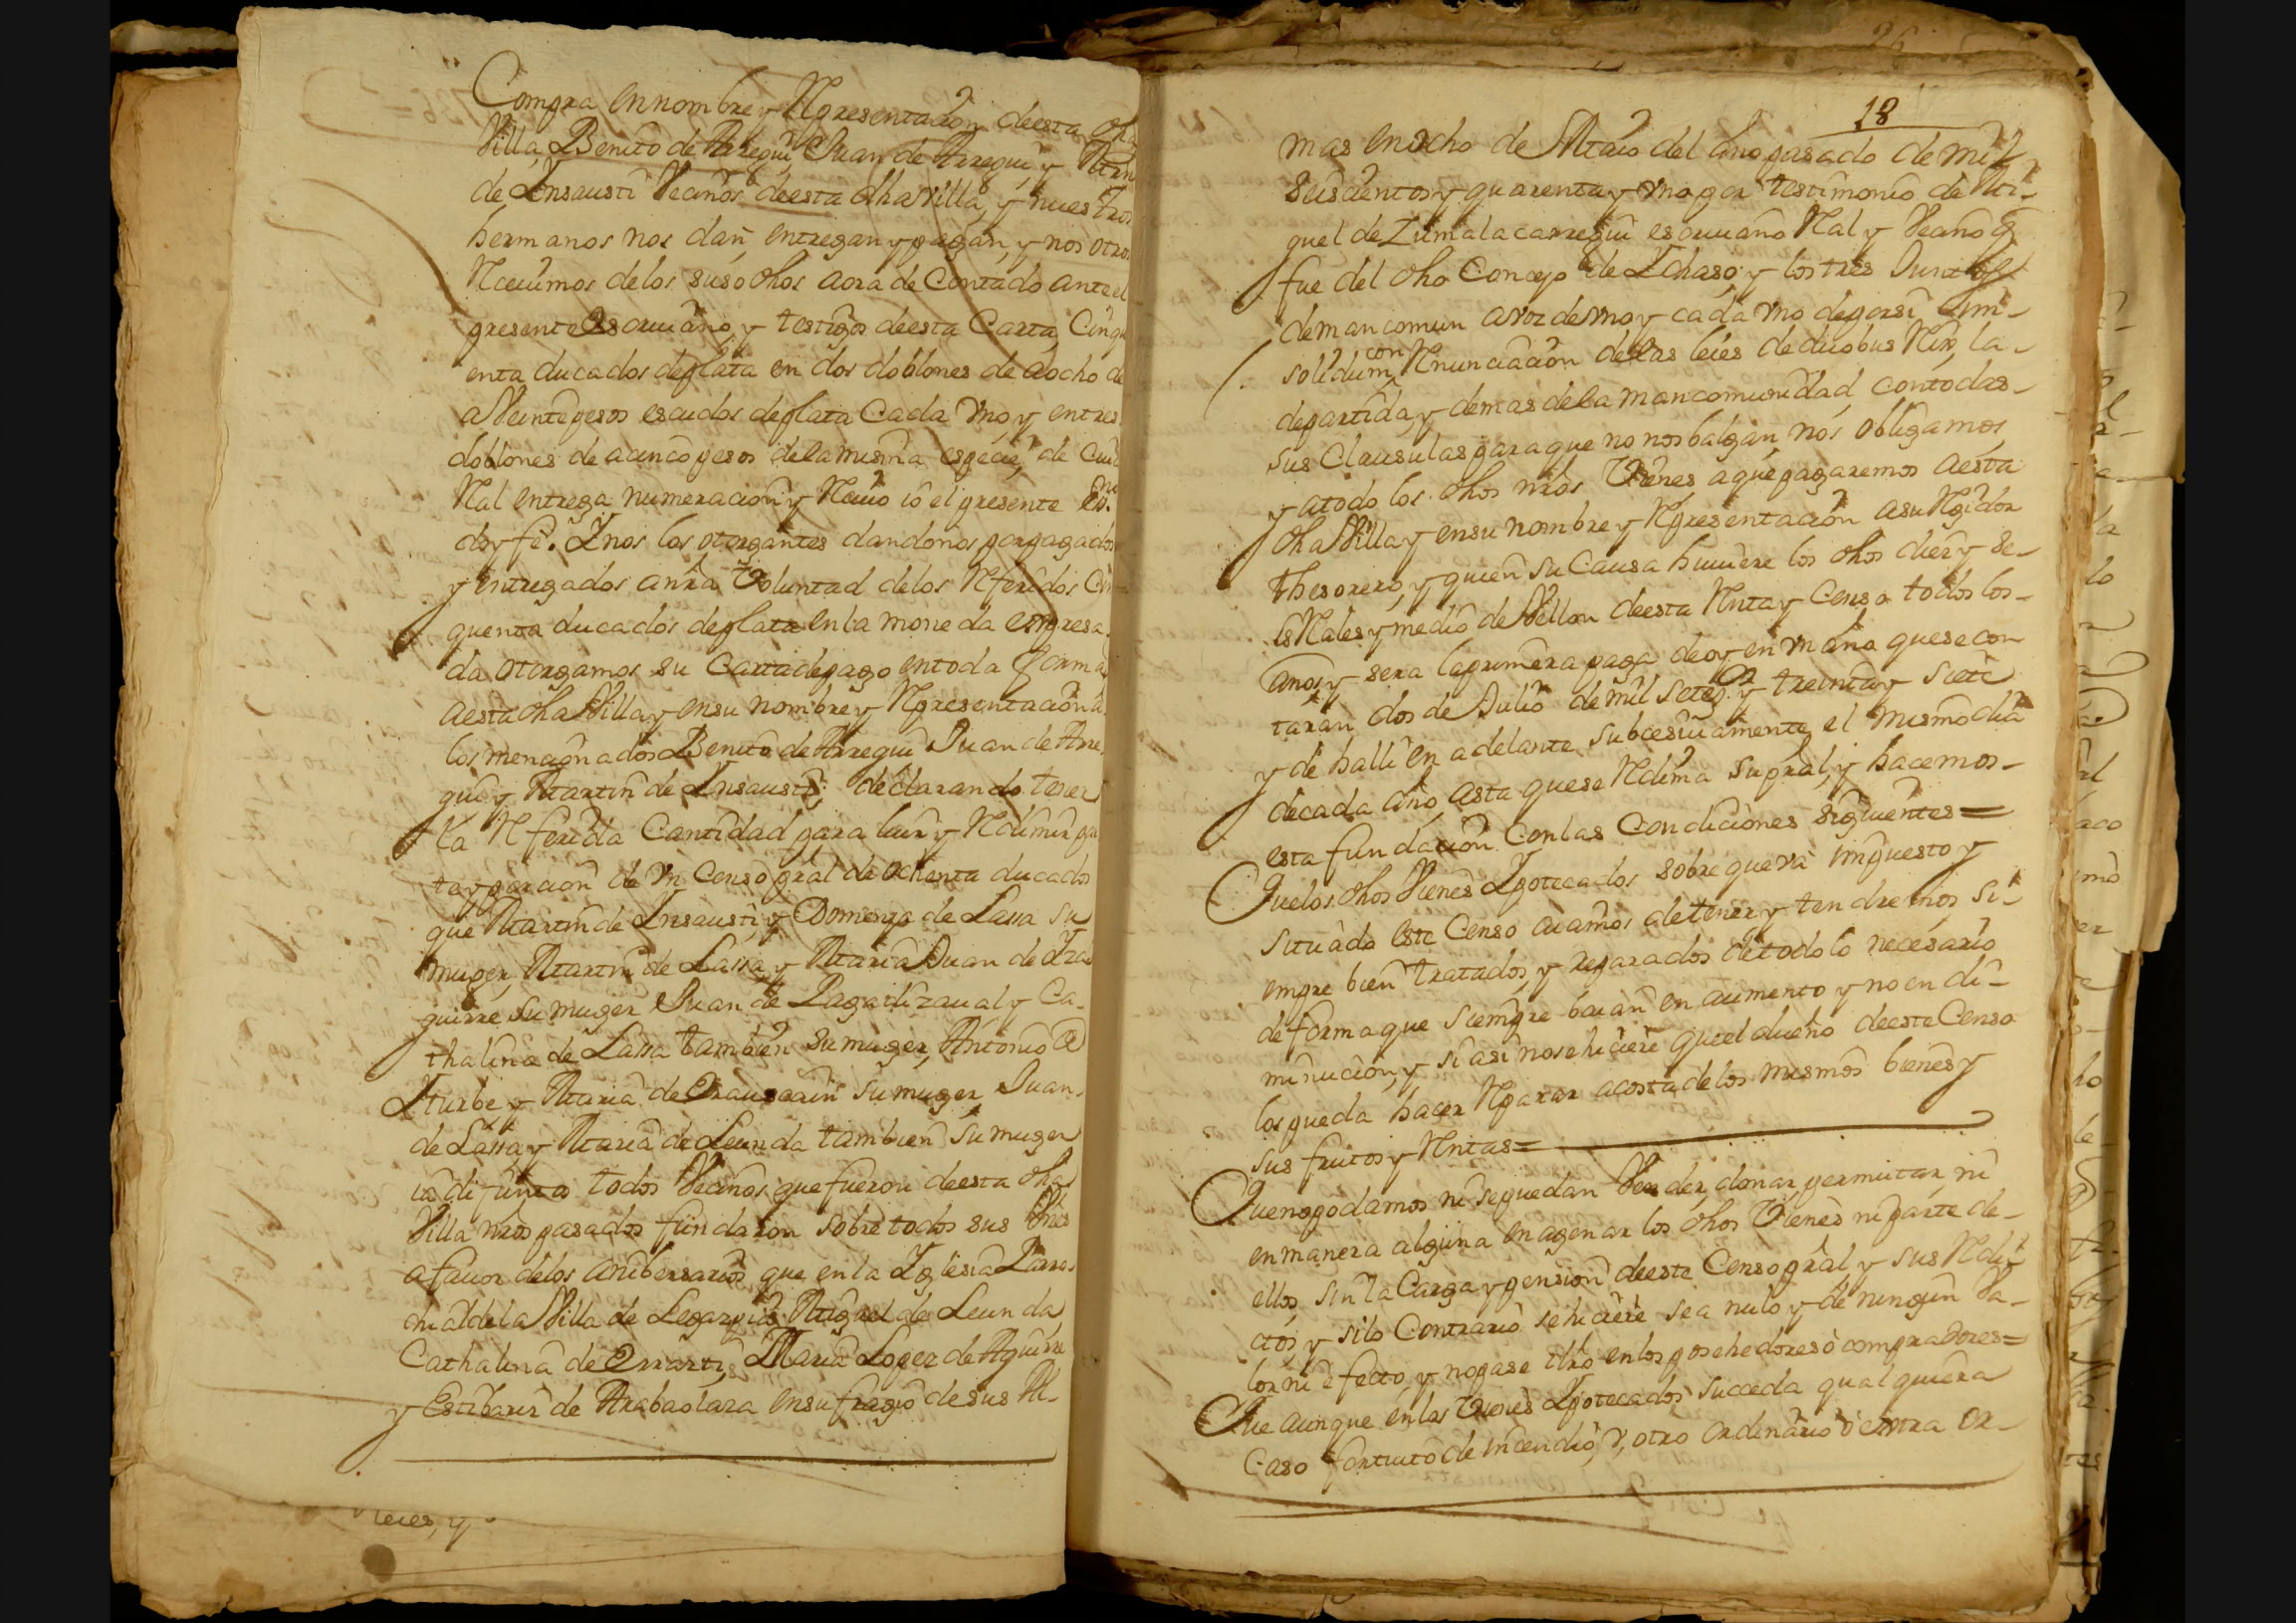 Compra en nombre y Representacion de esta dha
Villa, Benito de Arregui, Juan de Arregui, y Martin
de Insausti Vecinos de esta dha villa, y nuestros
hermanos nos dan, entregan y pagan, y nos otros
Recivimos de los suso dhos aora de Contado ante el
presente Escrivano, y testigos de esta Carta, Cinqu
enta ducados de plata en dos doblones de aocho de
a Veinte pesos escudos de plata Cada Vno, y en tres
doblones de a cinco pesos de la misma especie, de Cuia
Real entrega numeracion y Recivo io el presente es.no
doy fe. Y nos los otorgantes dandonos por pagados
y entregados a nra Voluntad de los Referidos Cin
quenta ducados de plata en la moneda expresa
da otorgamos su Carta de pago en toda forma
a esta dha Villa y en su nombre y Representacion a
los mencionados Benito de Arregui Juan de Arre
gui y Martin de Insausti; declarando tener
la Referida Cantidad para luir y Redimir pr
ta y porcion de Vn Censo pral de ochenta ducados
que Martin de Insausti, y Domenja de Lassa su
muger, Martin de Lassa, y Maria Juan de Yza
guirre su muger Juan de Pagadizaual y Ca-
thalina de Lassa tambien su muger, Antonio de
Yturbe y Maria de su muger Juan
de Lassa y Maria de Leunda tambien su muger
ia difunta todos Vecinos que fueron de esta dha
Villa nros pasados fundaron sobre todos sus Vnes
a fauor de los anibersarios que en la Yglesia Parro
chial de la Villa de Legazpia Miguel de Leunda
Cathalina de Errarti, Maria Lopez de Aguirre
y Estibariz de Arabaolaza en sufragio de sus Al-
veces, y
18
mas en ocho de Maio del año pasado de mil
seiscientos y quarenta y Vno por testimonio de Mi-
guel de Zumalacarregui escriuano Real y Vecino q
fue del dho Concejo de Ichaso; y los tres Juntos
de mancomun a voz de Vno y cada Vno de por si Yn-
solidum con Renunciacion de las leies de duobus Rex, la-
de partida, y demas de la mancomunidad, con todas-
sus Clausulas para que no nos balgan nos obligamos
y a todo los dhos nros Vienes a que pagaremos a esta
dha Villa y en su nombre y Representacion a su Regidor
thesorero, y quien su Causa huuiere los dhos diez y se-
is Reales y medio de Vellon de esta Renta y Censo todos los-
años y sera la primera paga de oy en Vn año que se con
taran dos de Julio de mil setez.s y treinta y siete
y de halli en adelante subcesiuamente el mismo dia
de cada año, asta que se Redima su pral, y hacemos-
esta fundacion Con las Condiciones siguientes=
Que los dhos Vienes Ypotecados sobre que va impuesto y
situado este Censo aiamos de tener y ten dremos si-
empre bien tratados, y reparados de todo lo necesario
de forma que siempre baian en aumento y no en di-
minucion, y si asi no se hiciere que el dueño de este Censo
los pueda hacer Reparar a costa de los mismos bienes y
sus frutos y Rentas=
Que no podamos ni se puedan Vender, donar permutar, ni
en manera alguna enagenar los dhos Vienes ni parte de-
ellos, sin la Carga y pension de este Censo pral y sus Redi-
ctos, y si lo Contrario se hiciere sea nulo y de ningun Va-
lor ni efecto, y no pase tlo en los posehedores o compradores=
Que aunque en los Vienes Ypotecados succeda qualquiera
Caso fortuito de incendio, v, otro ordinario o extra or-